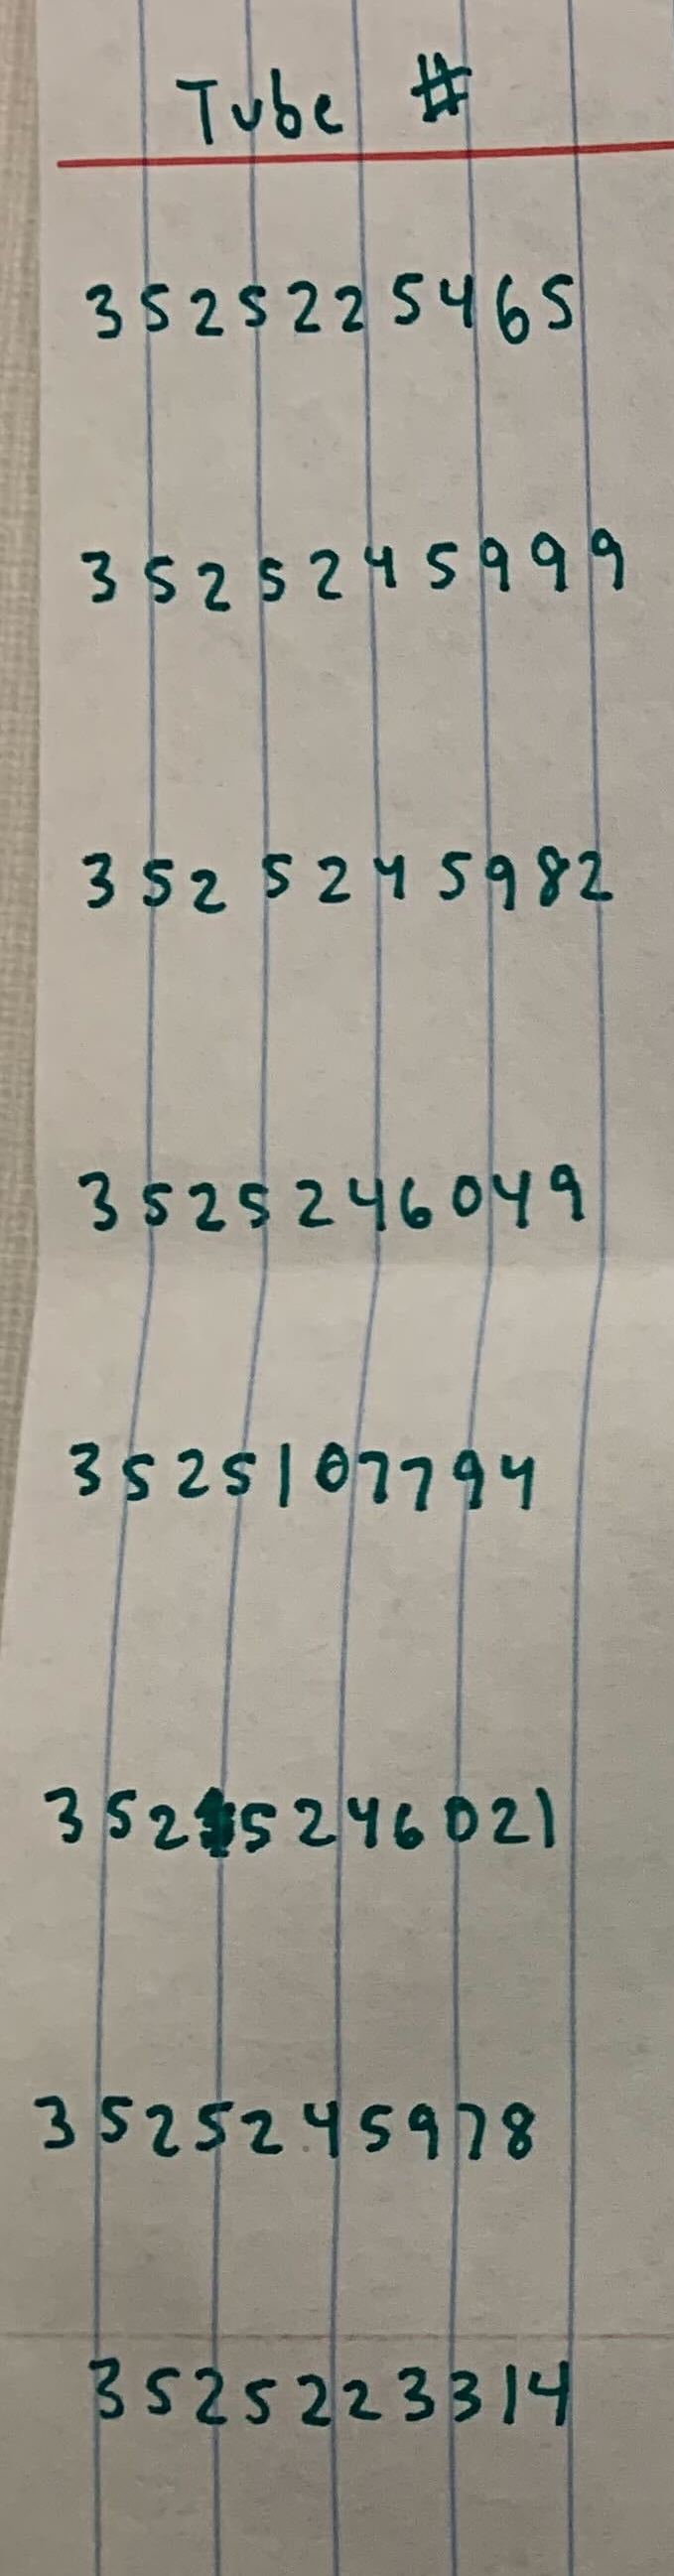 Tube #
3525225465
3525245999
3525245982
3525246049
3525107794
3525246021
3525245978
3525223314